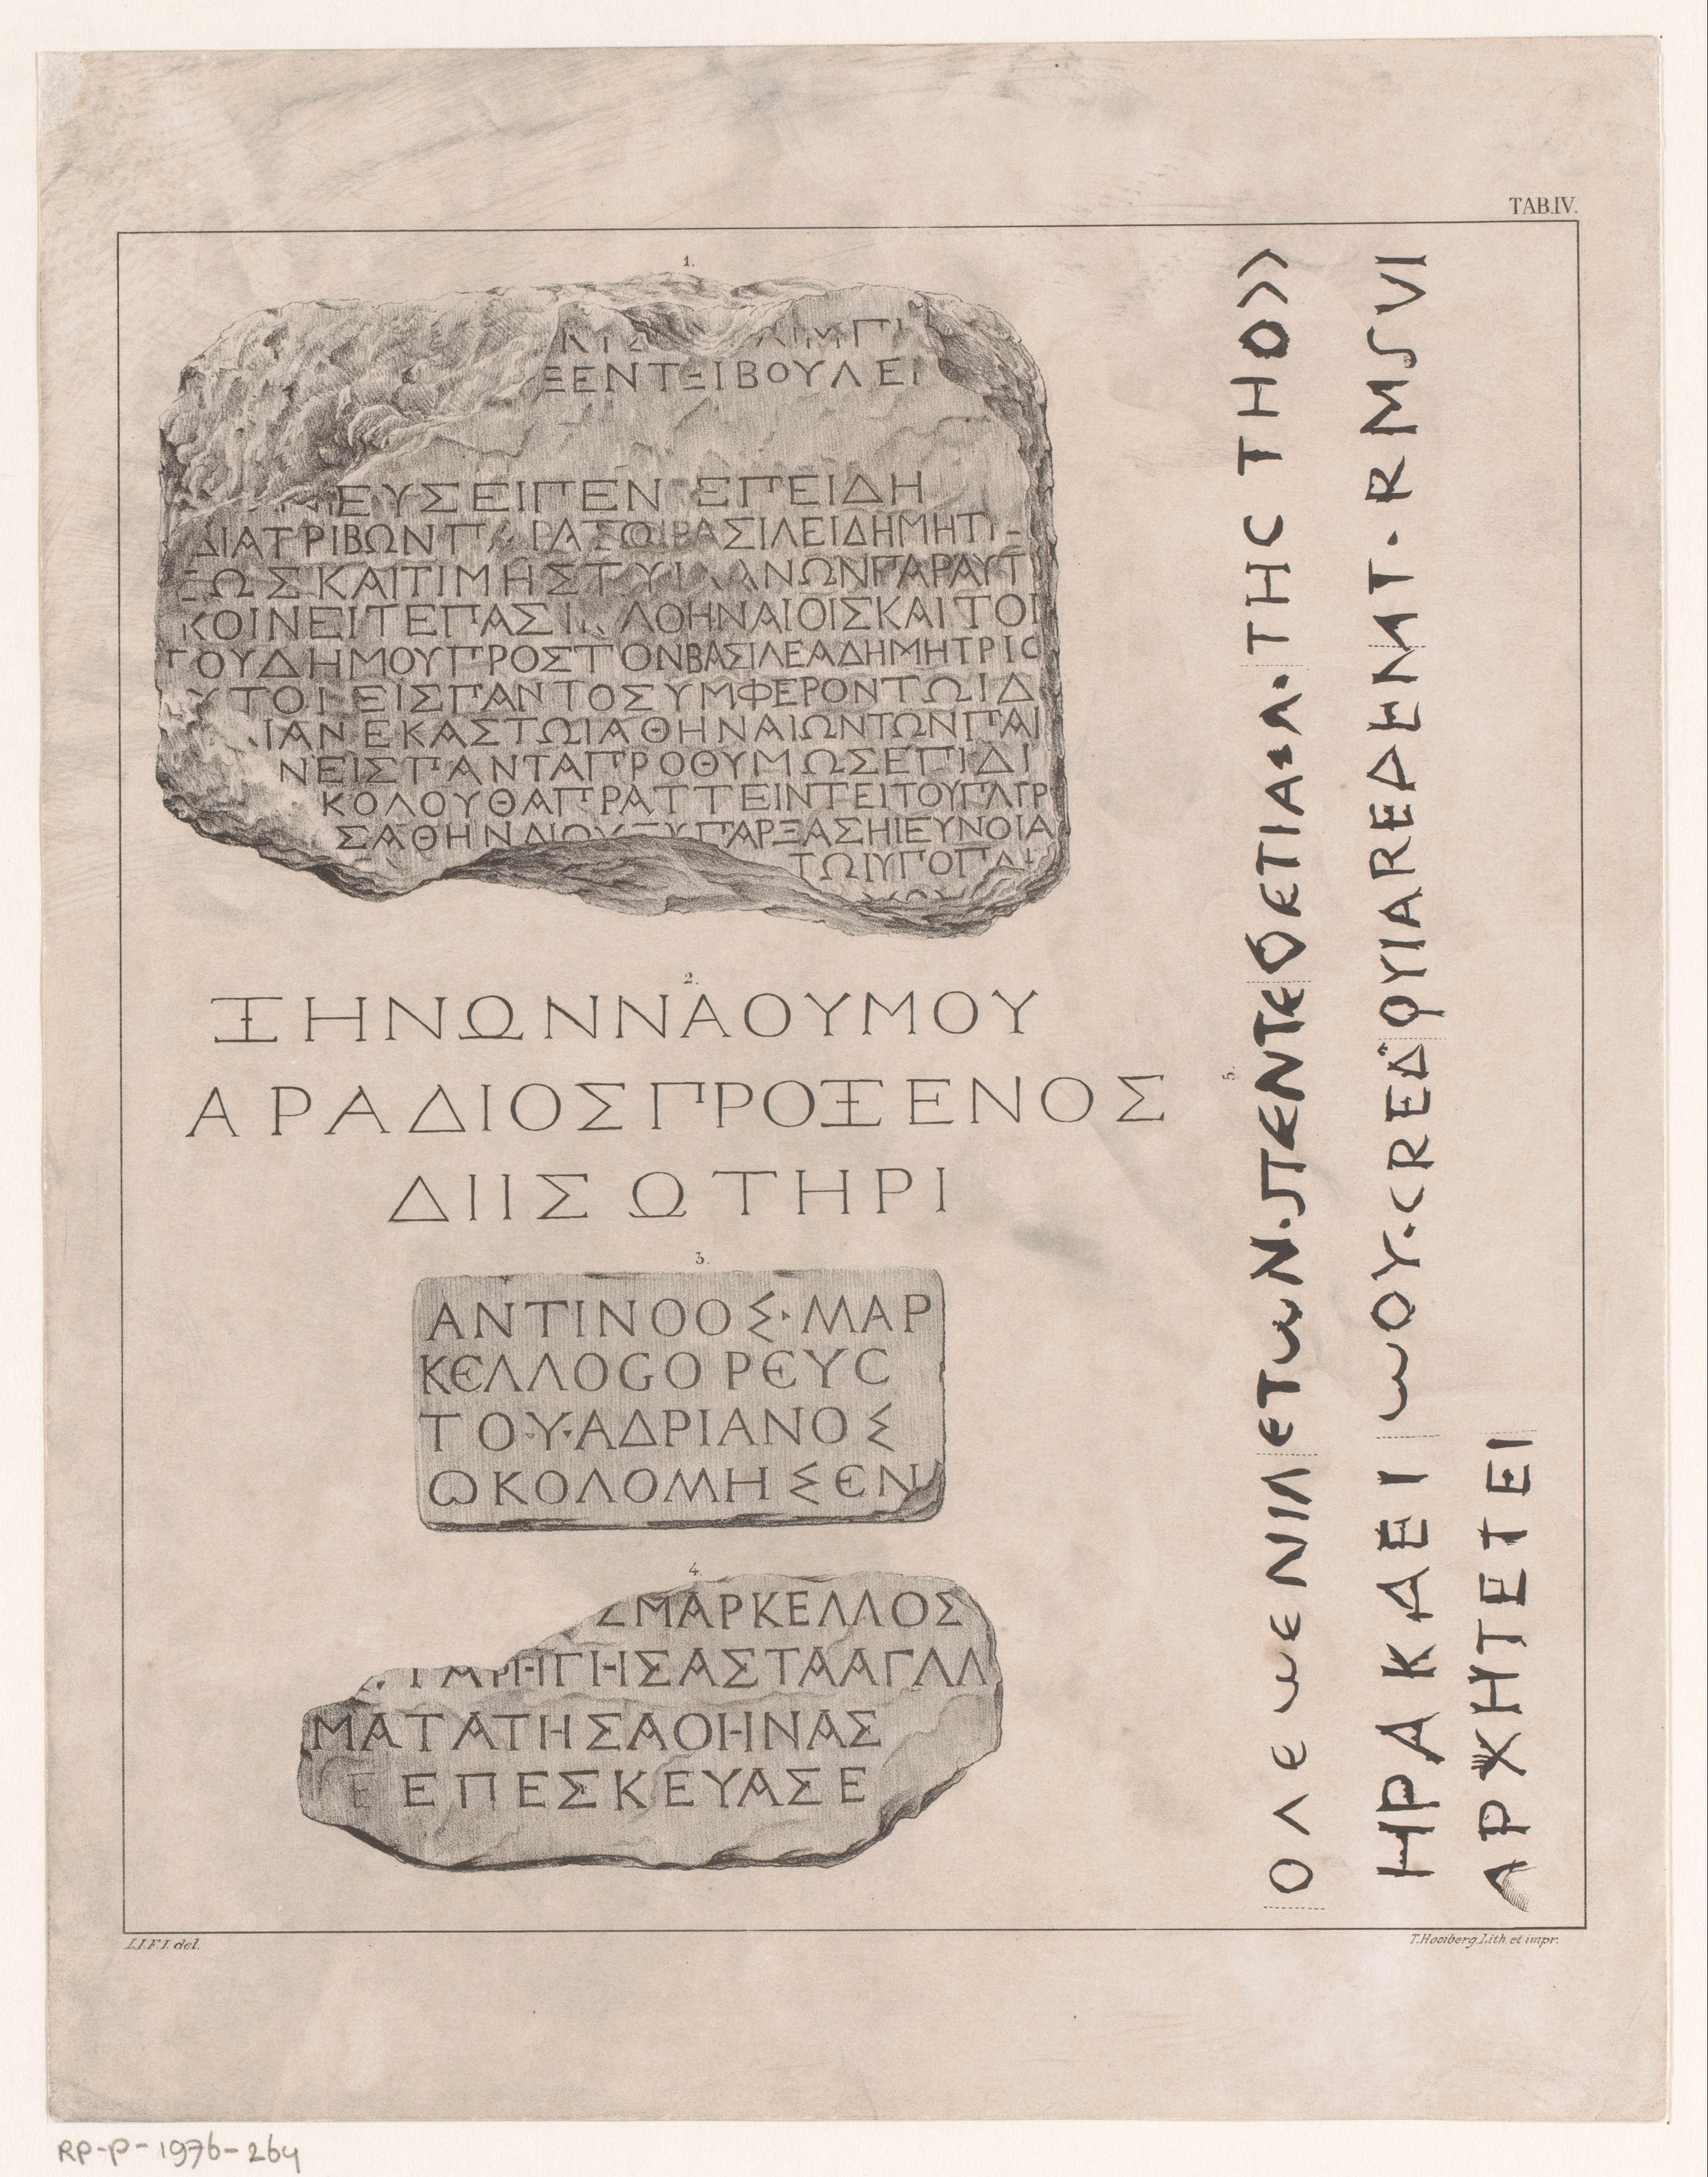 TAB.IV.
1.
ΞΕΝΤΞΙΒΟΥΛΕΙ
ΕΥΣΕΙΠΕΝ ΕΠΕΙΔΗ
ΔΙΑΤΡΙΒΩΝΠ ΡΑΤΩΙΒΑΣΙΛΕΙΔΗΜΗΤΙ
ΩΣΚΑΙΤΙΜΗΣΤΥΙ ΝΩΝΠΑΡΑΥΤ
ΚΟΙΝΕΙΤΕΠΑΣΙ ΛΟΗΝΑΙΟΙΣΚΑΙΤΟΙ
ΤΟΥΔΗΜΟΥΠΡΟΣΤΟΝΒΑΣΙΛΕΑΔΗΜΗΤΡΙΟ
ΥΤΟΙΕΙΣΠΑΝΤΟΣΥΜΦΕΡΟΝΤΩΙΔ
ΙΑΝΕΚΑΣΤΩΙΑΘΗΝΑΙΩΝΤΩΝΠΑΙ
ΝΕΙΣΠΑΝΤΑΠΡΟΘΥΜΩΣΕΠΙΔΙ
ΚΟΛΟΥΘΑΠΡΑΤΤΕΙΝΤΕΙΤΟΥΠΛΓΡ
ΣΑΘΗΝΔΙΟΥΣΥΠΑΡΞΑΣΗΙΕΥΝΟΙΑ
ΤΩΙΥΠΟΓΔ
2.
ΞΗΝΩΝΝΑΟΥΜΟΥ
ΑΡΑΔΙΟΣΠΡΟΞΕΝΟΣ
ΔΙΙΣΩΤΗΡΙ
3.
ΑΝΤΙΝΟΟΣ·ΜΑΡ
ΚЄΛΛΟGΟΡЄΥC
ΤΟ·Υ·ΑΔΡΙΑΝΟΣ
ΩΚΟΛΟΜΗΣЄΝ
4.
ΣΜΑΡΚΕΛΛΟΣ
ΓΑΡΗΓΗΣΑΣΤΑΑΓΛΛ
ΜΑΤΑΤΗΣΑΟΗΝΑΣ
Ε ΕΠΕΣΚΕΥΑΣΕ
5.
ΟΛЄωЄΝΙΛЄΤωΝ·ΠЄΝΤЄΘЄΤΙΑΛ·ΤΗC ΤΗΟ>>
ΗΡΑΚΔΕΙωΟΥ·CRΕΔΟΥΙΑRΕΔΕΜΤ·RMSVI
ΑΡΧΗΤΕΤΕΙ
L.I.F.I. del.
T.Hooiberg.Lith.et impr.
RP-P-1976-264